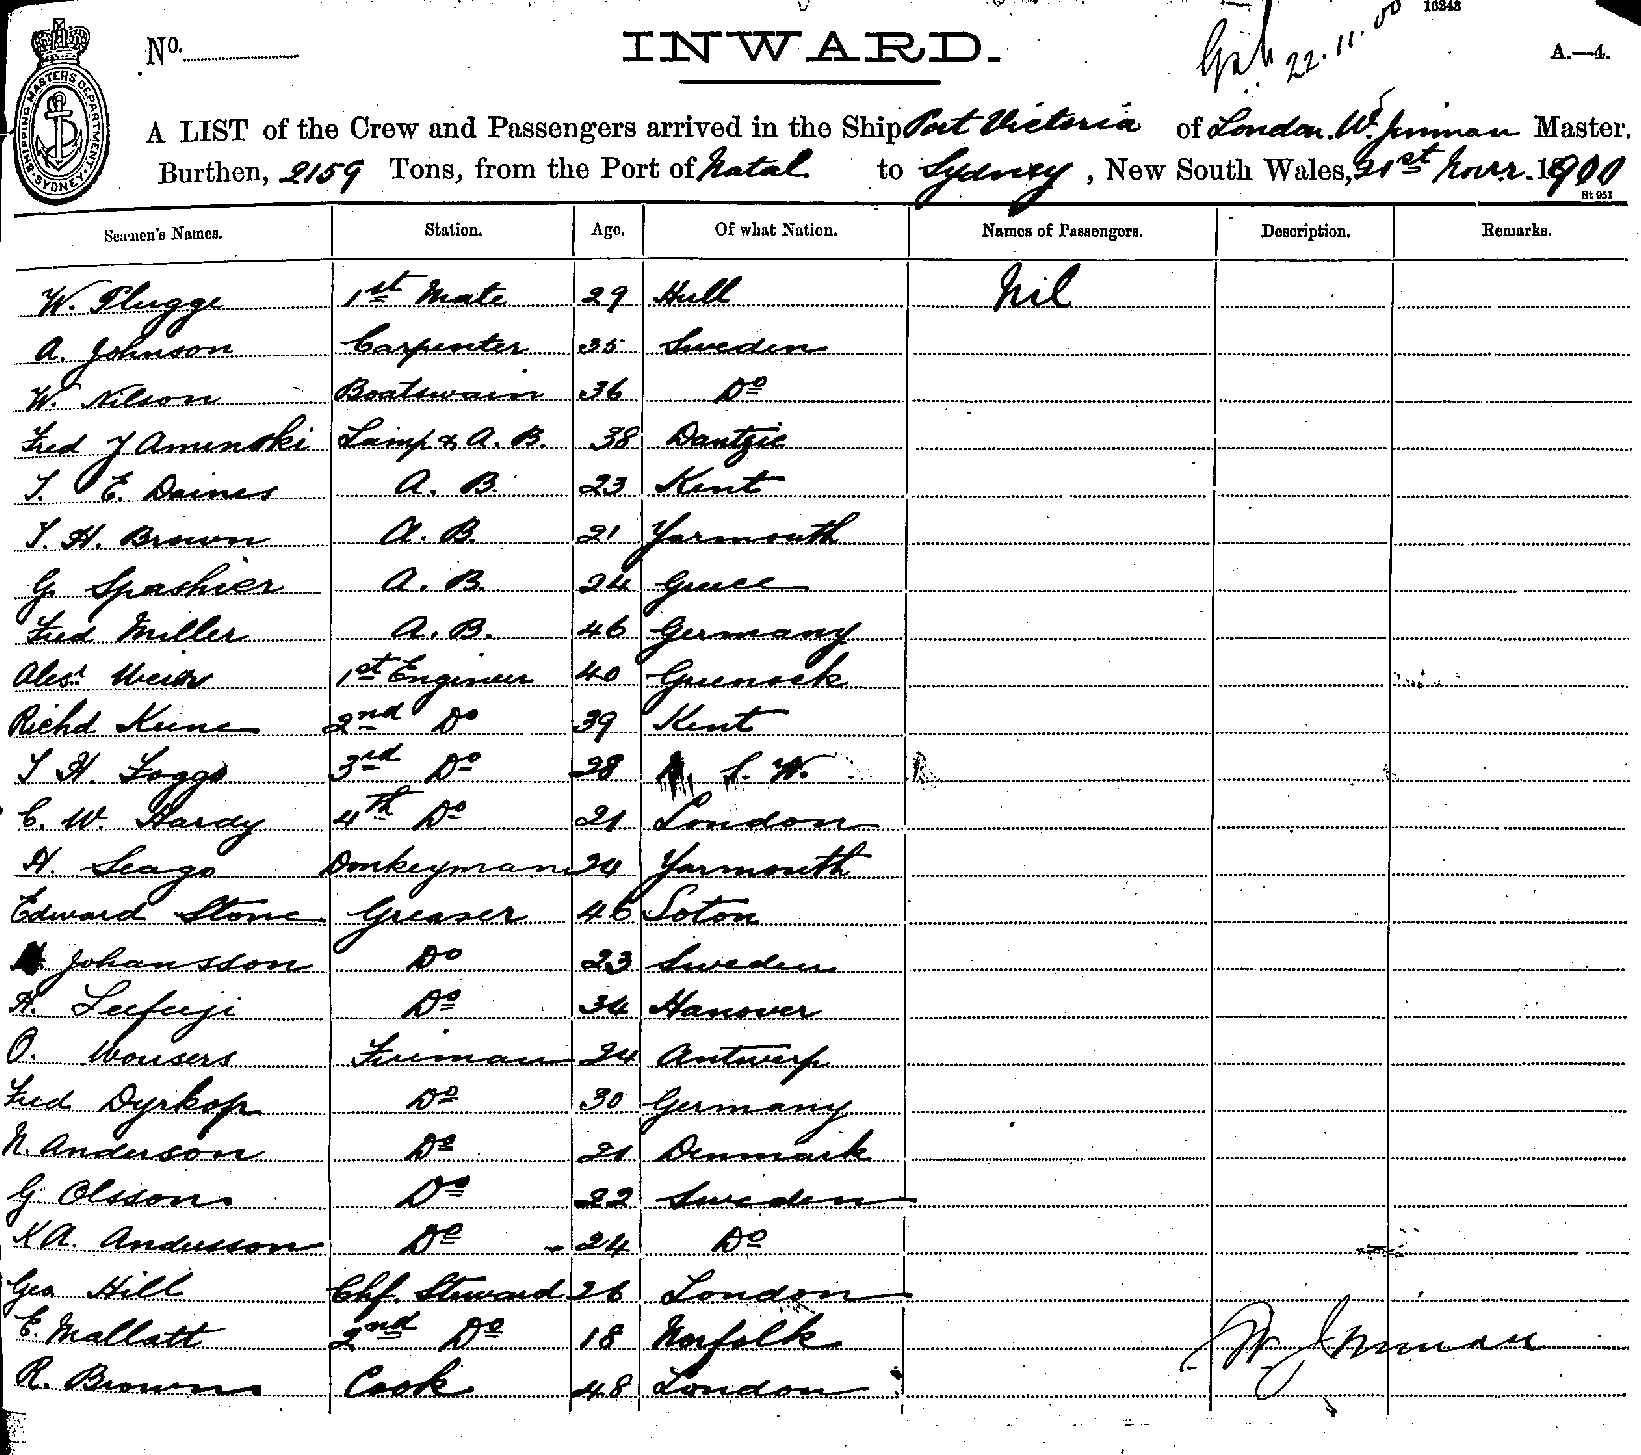 16248
No.
INWARD.
22.11.00
A.—4.
SHIPPING MASTERS DEPARTMENT SYDNEY
A LIST of the Crew and Passengers arrived in the Ship Port Victoria of London. W. Jinman Master,
Burthen, 2159 Tons, from the Port of Natal to Sydney, New South Wales, 21st Novr. 1900
St 953
Seamen's Names. Station. Age. Of what Nation. Names of Passengers. Description. Remarks.
W. Flugge 1st Mate 29 Hull Nil
A. Johnson Carpenter 35 Sweden
W. Nilson Boatswain 36 Do
Fred J Amenski Lamp & A. B. 38 Dantzic
T. E. Daines A. B. 23 Kent
T. H. Brown A. B. 21 Yarmouth
G. Spashier A. B. 24 Greece
Fred Miller A. B. 46 Germany
Alexr Weir 1st Engineer 40 Greenock
Richd Keene 2nd Do 39 Kent
T H. Foggo 3rd Do 28 S. W.
C. W. Hardy 4th Do 21 London
H. Seago Donkeyman 24 Yarmouth
Edward Stone Greaser 46 Soton
Johansson Do 23 Sweden
H. Do 34 Hanover
O. Wousers Fireman 24 Antwerp
Fred Dyrkop Do 30 Germany
N. Anderson Do 21 Denmark
G Olsson Do 22 Sweden
K A. Andersson Do 24 Do
Geo Hill Chf. Steward 26 London
E. Mallatt 2nd Do 18 Norfolk
R. Brown Cook 48 London
W. Jinman